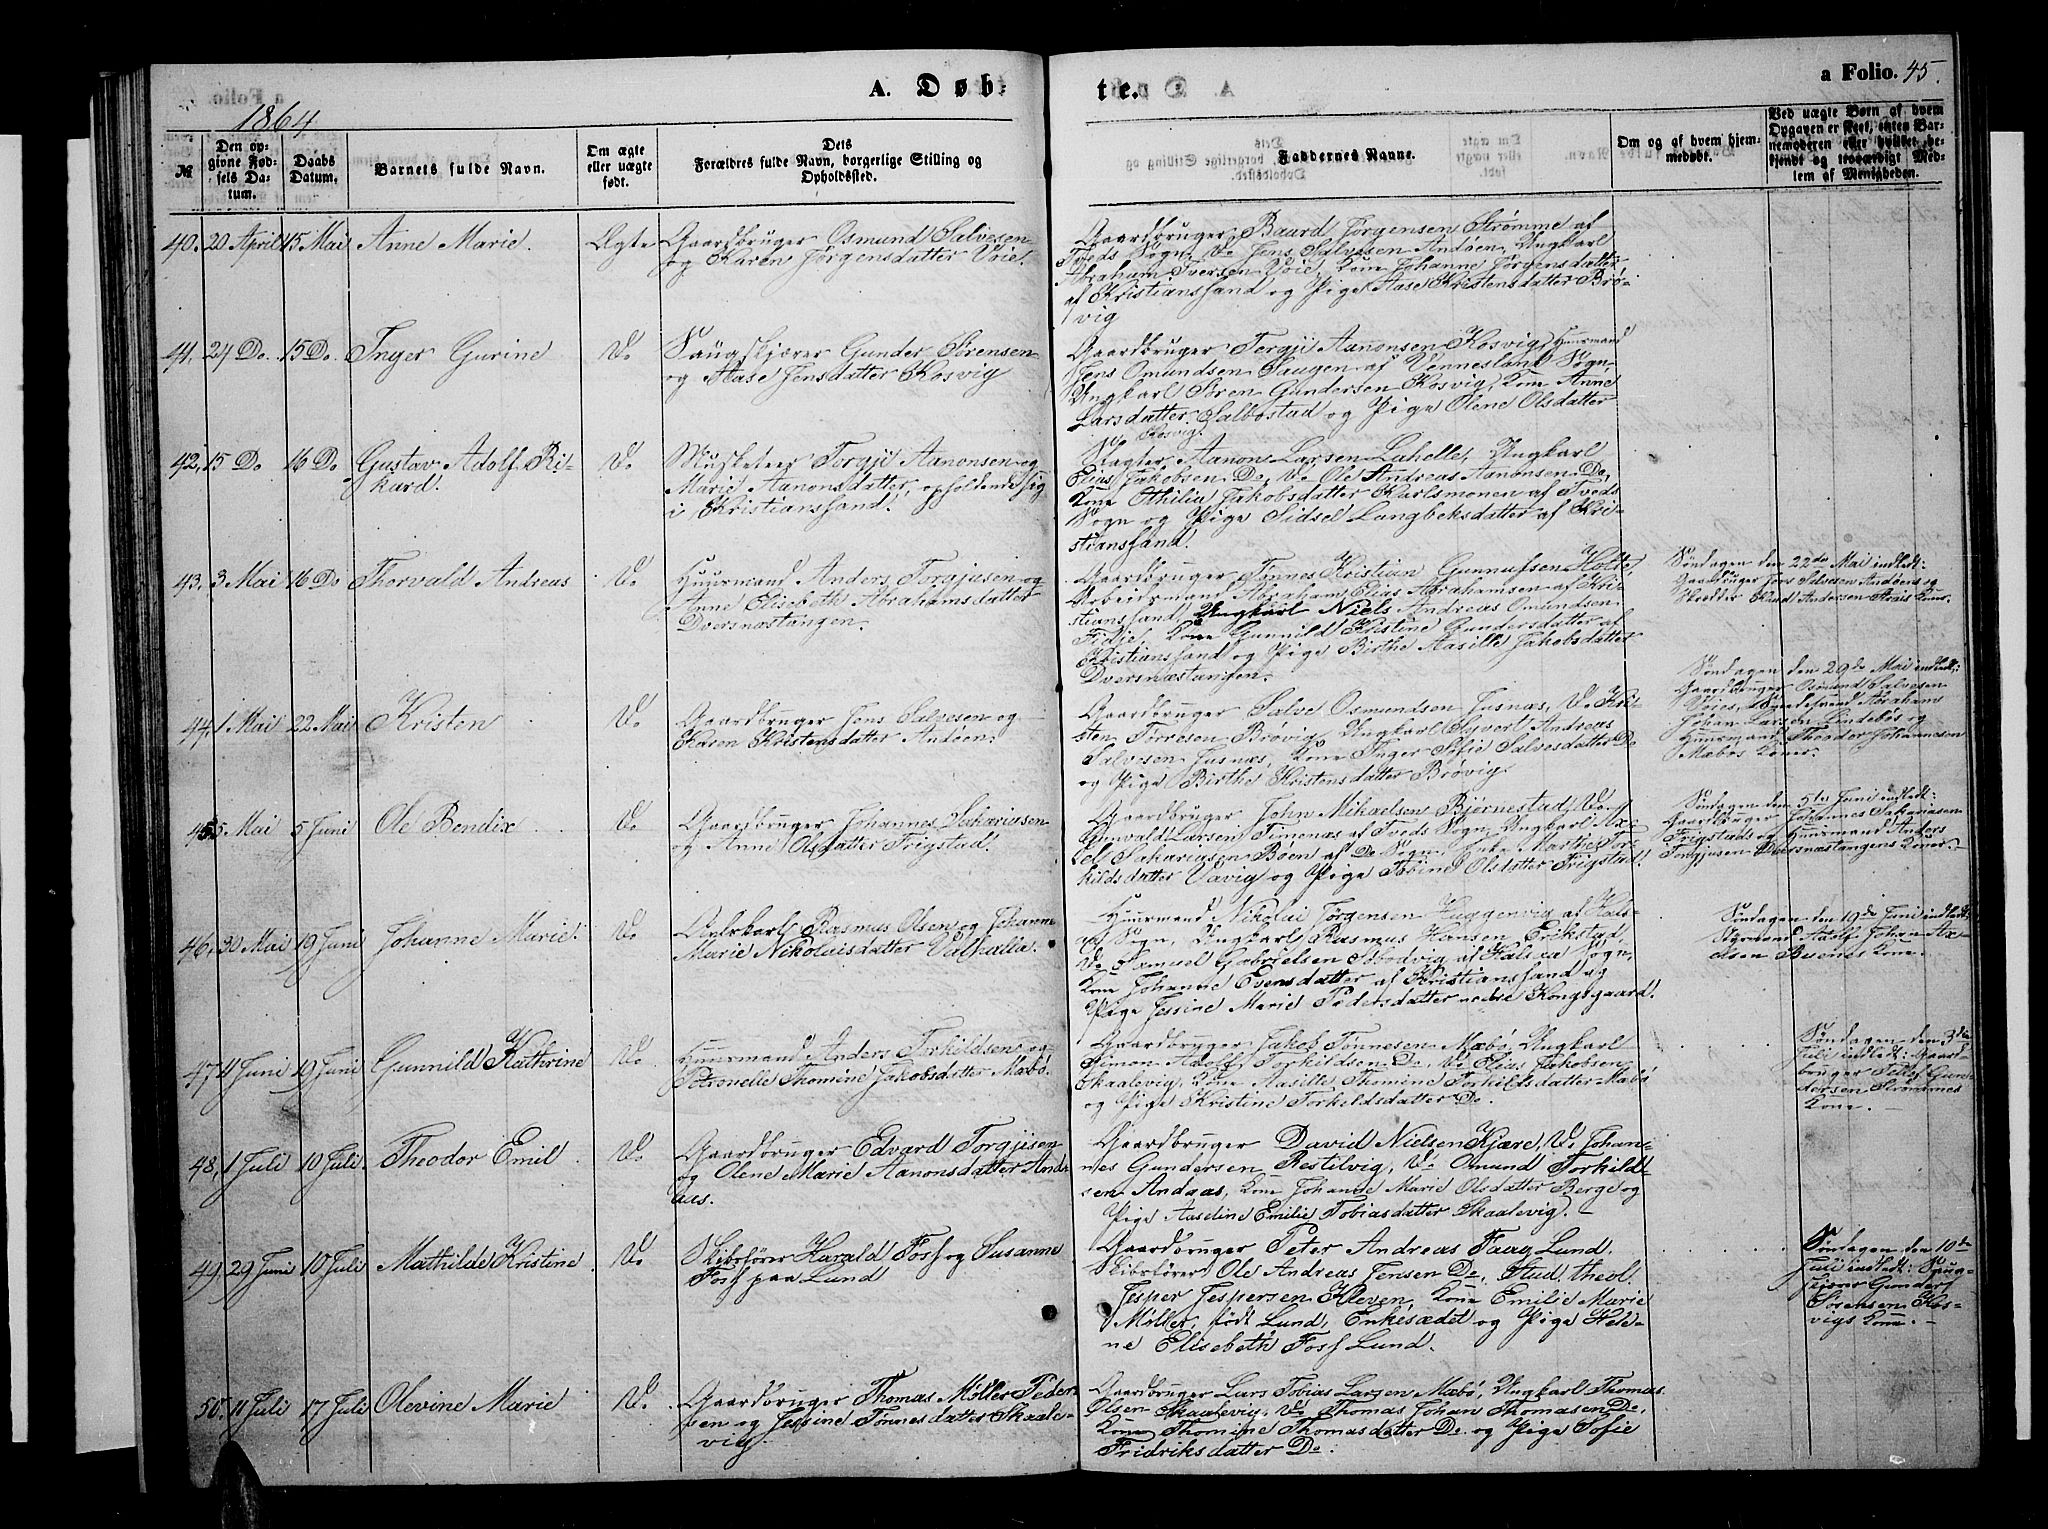 A. Døb-
te.
a Folio. 45.
1864
№
Den opgivne Fødsels Datum.
Daabs Datum.
Barnets fulde Navn.
Om ægte eller uægte født.
Dets Forældres fulde Navn, borgerlige Stilling og Opholdssted.
Faddernes Navne.
Om og af hvem hjemmedøbt.
Ved uægte Børn af hvem Opgaven er skeet, enten Barnemoderen eller hvilket bekjendt og troværdigt Medlem af Menigheden.
40. 20 April 15 Mai Anne Marie. Ægte Gaardbruger Osmund Salvesen
og Karen Jørgensdatter Voie.
Gaardbruger Baard Jørgensen Strømme af
Tveds Sogn, Do Jens Salvesen Andøen, Ungkarl
Abraham Iversen Voie, Kone Johanne Jørgensdatter
af Kristianssand og Pige Aase Kristensdatter Brø-
vig
41. 24 Do. 15 Do. Inger Gurine Do Saugskjærer Gunder Sørensen
og Aase Jensdatter Kosvig
Gaardbruger Tergji Aanonsen Kosvig, Huusmand
Jens Omundsen Haugen af Vennesland Sogn,
Ungkarl Søren Gundersen Kosvig, Kone Anne
Larsdatter Salbostad og Pige Olene Olsdatter
Kosvig.
42. 15 Do 16 Do Gustav Adolf Ri-
kard. Do Musketeer Torgji Aanonsen og
Marie Aanonsdatter, opholdende sig
i Kristianssand.
Slagter Aanon Larsen Lahelle, Ungkarl
Elias Jakobsen Do, Do Ole Andreas Aanonsen Do,
Kone Othilia Jakobsdatter Karlsmonen af Tveds
Sogn og Pige Sidsel Langbeksdatter af Kri-
stianssand.
43. 3 Mai 16 Do Thorvald Andreas Do Huusmand Anders Torgjusen og
Anne Elisebeth Abrahamsdatter
Dversnæstangen.
Gaardbruger Tønnes Kristian Gunnufsen Holte,
Arbeidsmand Abraham Elias Abrahamsen af Kri-
stianssand, Ungkarl Niels Andreas Omundsen
Fidje, Kone Gunnild Kristine Gundersdatter af
Kristianssand og Pige Birthe Aasille Jakobsdatter
Dversnæstangen.
Søndagen den 22de Mai indledt:
Gaardbruger Jens Salvesen Andøens og
Skredder Knud Andersen Kone.
44. 1 Mai 22 Mai Kristen Do Gaardbruger Jens Salvesen og
Karen Kristensdatter Andøen.
Gaardbruger Salve Osmundsen Jusnæs, Do Kri-
sten Tørresen Brøvig, Ungkarl Syvert Andreas
Salvesen Jusnæs, Kone Inger Sofie Salvesdatter Do
og Pige Birthe Kristensdatter Brøvig.
Søndagen den 29de Mai indledt:
Gaardbruger Osmund Salvesen
Voies, Abrahams
Johan Larsen Lindebøs og
Huusmand Theodor Johannesen
Mæbøs Koner.
45. 5 Mai 5 Juni Ole Bendix Do Gaardbruger Johannes Sakariasen
og Anne Olsdatter Frigstad.
Gaardbruger John Mikaelsen Bjørnestad, Do
Gunvald Larsen Timenæs af Tveds Sogn, Ungkarl Axi-
sel Sakariasen Bøen af Do Sogn, Enke Marthe Tor-
kildsdatter Vavig og Pige Tobine Olsdatter Frigstad.
Søndagen den 5te Juni indledt:
Gaardbruger Johannes Sakariasen
Frigstads og Huusmand Anders
Torgjusen Dversnæstangens Koner.
46. 30 Mai 19 Juni Johanne Marie. Do Rasmus Olsen og Johanne
Marie Nikolaisdatter Valhalla.
Huusmand Nikolai Jørgensen Huggenvig af Hals-
ea Sogn, Ungkarl Rasmus Hansen Erikstad,
Do Samuel Gabrielsen af Halsea Sogn,
Kone Johanne Evensdatter af Kristianssand og
Pige Jessine Marie Pedersdatter nedre Kongsgaard.
Søndagen den 19de Juni indledt:
Styrmand Adolf Johan Ax-
elsen Buenes Kone.
47. 4 Juni 19 Juni Gunnild Kathrine Do Huusmand Anders Terkildsen og
Petronelle Thomine Jakobsdatter Mæbø.
Gaardbruger Jakob Tønnesen Mæbø, Ungkarl
Simon Adolf Terkildsen Do, Do Elias Jakobsen
Skaalevig, Kone Aasille Thomine Terkildsdatter Mæbø
og Pige Kristine Terkeldsdatter Do.
Søndagen den 3die
Juli indledt: Gaard-
bruger Gun-
dersen Strømmes
Kone.
48. 1 Juli 10 Juli Theodor Emil. Do Gaardbruger Edvard Torgjusen
og Olene Marie Aanonsdatter And-
aas.
Gaardbruger David Nielsen Kjære, Do Johan-
nes Gundersen Restilvig, Do Omund Torkild-
sen Andaas, Kone Johanne Marie Olsdatter Berge og
Pige Aaseline Emilie Tobiasdatter Skaalevig.
49. 29 Juni 10 Juli Mathilde Kristine Do Skibsfører Harald Foss og Susanne
Foss paa Lund
Gaardbruger Peter Andreas Faag Lund,
Skibsfører Ole Andreas Jensen Do, Stud. theol.
Jesper Jespersen Kleven, Kone Emilie Marie
Møller, født Lund, Enkesædet og Pige Hele-
ne Elisebeth Foss Lund.
Søndagen den 10de
Juli indledt: Saug-
skjærer Gunder
Sørensen Kos-
vigs Kone.
50. 11 Juli 17 Juli Olevine Marie Do Gaardbruger Thomas Møller Peder-
sen og Jessine Tønnesdatter Skaale-
vig.
Gaardbruger Lars Tobias Larsen Mæbø, Ungkarl Thomas
Olsen Skaalevig, Do Thomas Johan Thomasen Do,
Kone Thomine Thomasdatter Do. og Pige Sofie
Fridriksdatter Do.